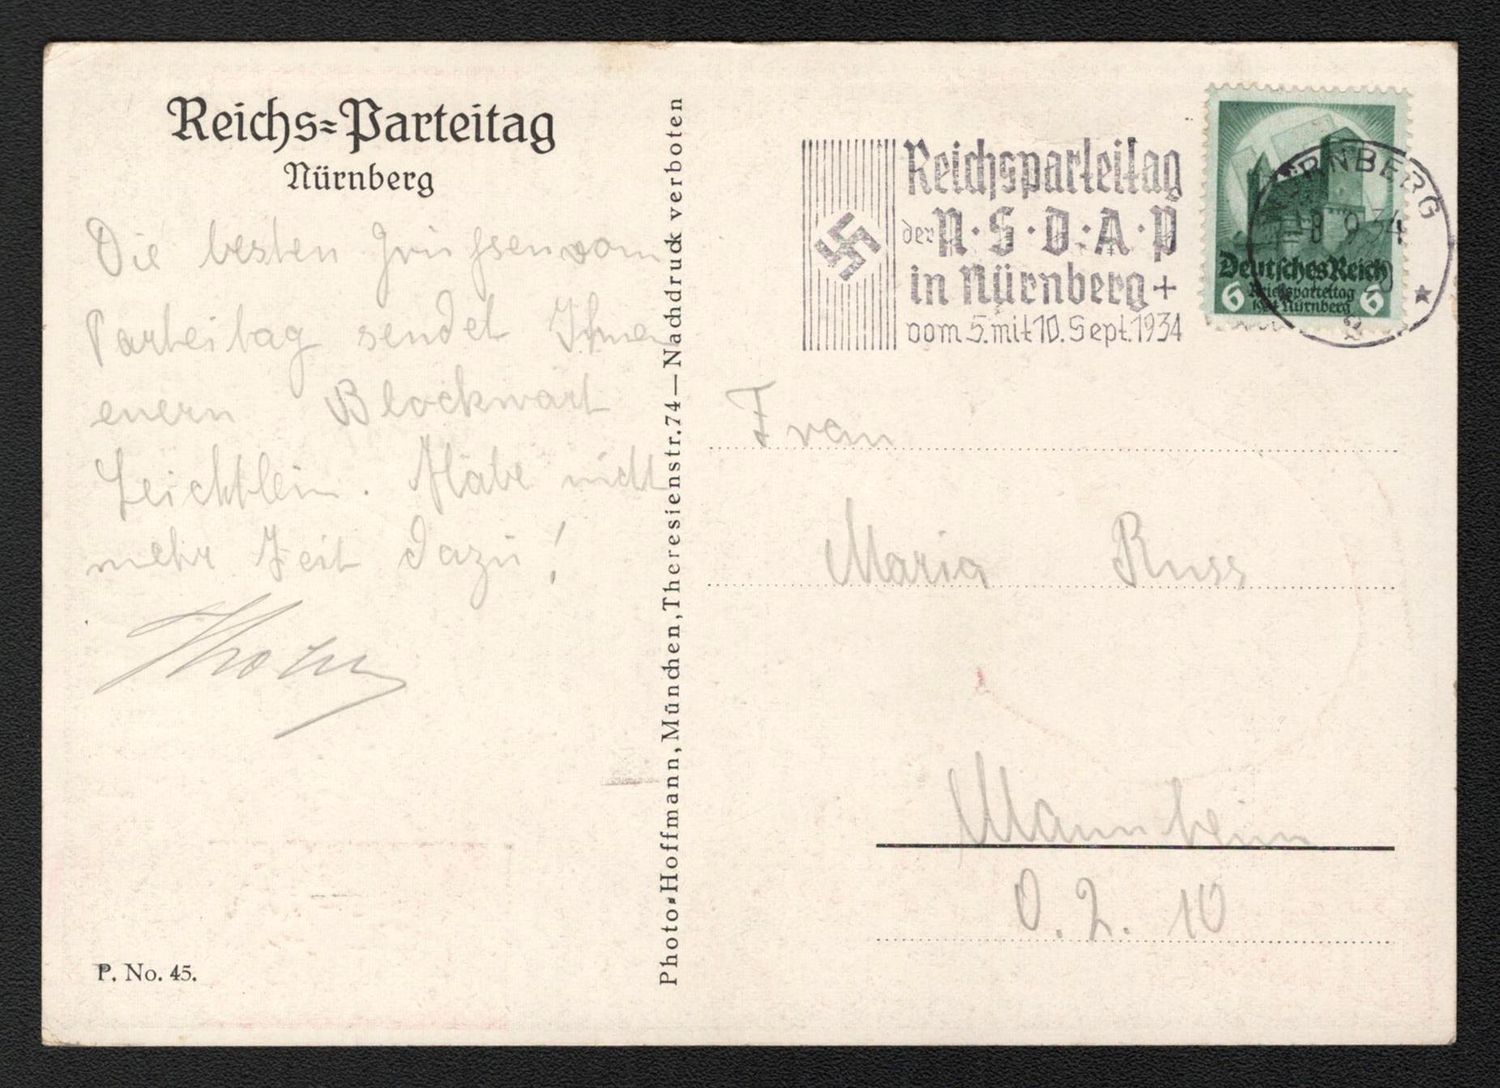 Reichs=Parteitag
Nürnberg
Die besten Grüssen vom
Parteitag sendet Ihnen
euern Blockwart
Leichtlein. Habe nicht
mehr Zeit dazu!
P. No. 45.
Photo=Hoffmann, München, Theresienstr. 74 — Nachdruck verboten
Reichsparteitag
der N·S·D·A·P
in Nürnberg +
vom 5. mit 10. Sept. 1934
NÜRNBERG
-8.9.34
Deutsches Reich
Reichsparteitag
1934 Nürnberg
6 6
Frau
Maria Russ
Mannheim
O. 2. 10